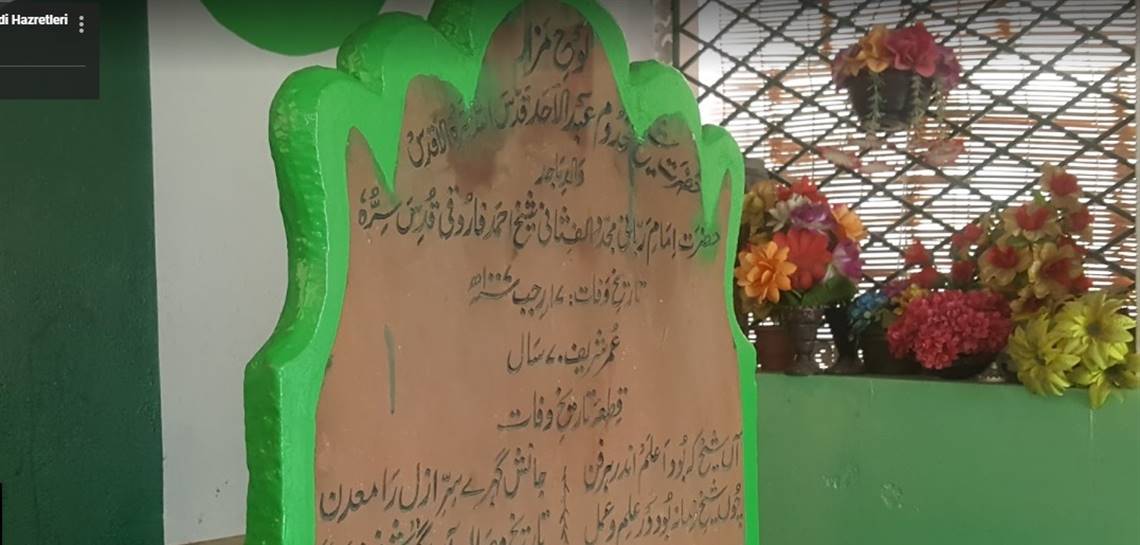 di Hazretleri
لوحِ مزار
حضرت شیخ مخدوم عبدالاحد قدس اللہ سرہ الاقدس
والد ماجد
حضرت امام ربانی مجدد الف ثانی شیخ احمد فاروقی قدس سرہٗ
تاریخ وفات: ۱۷ رجب ۱۰۰۷ھ
عمر شریف ۷۰ سال
قطعۂ تاریخ وفات
آں شیخ کہ بود اعلم اندر ہر فن جانش گہرے سرِّ ازل را معدن
چوں شیخ زمانہ بود در علم و عمل تاریخ وصال